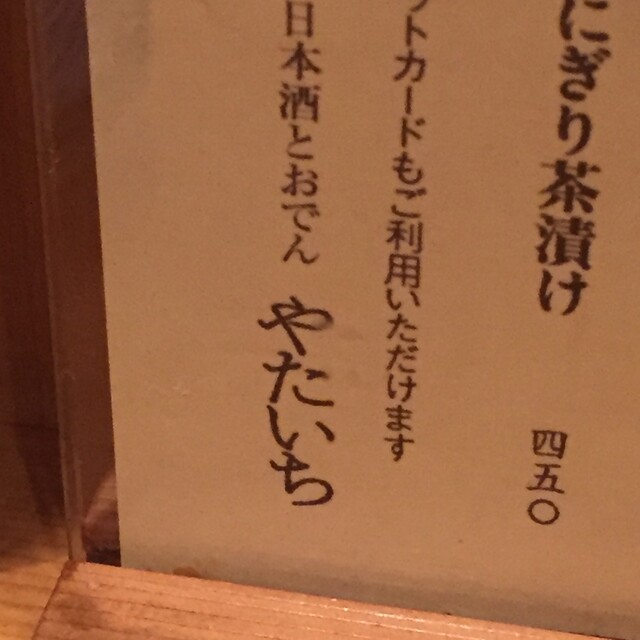 にぎり茶漬け 四五〇
ットカードもご利用いただけます
日本酒とおでん やたいち